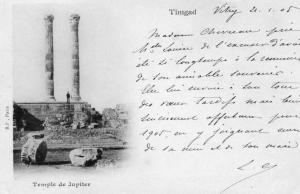 Timgad
Vitry 21.1.05
Madame Chevreau prie
Mlle Louise de l'excuser d'avoir
été si longtemps à la remercier
de son aimable souvenir.
Elle lui envoie à son tour
des vœux tardifs mais bien
sincèrement affectueux pour
1905 en y joignant ceux
de sa mère et de son mari
L. C
Temple de Jupiter